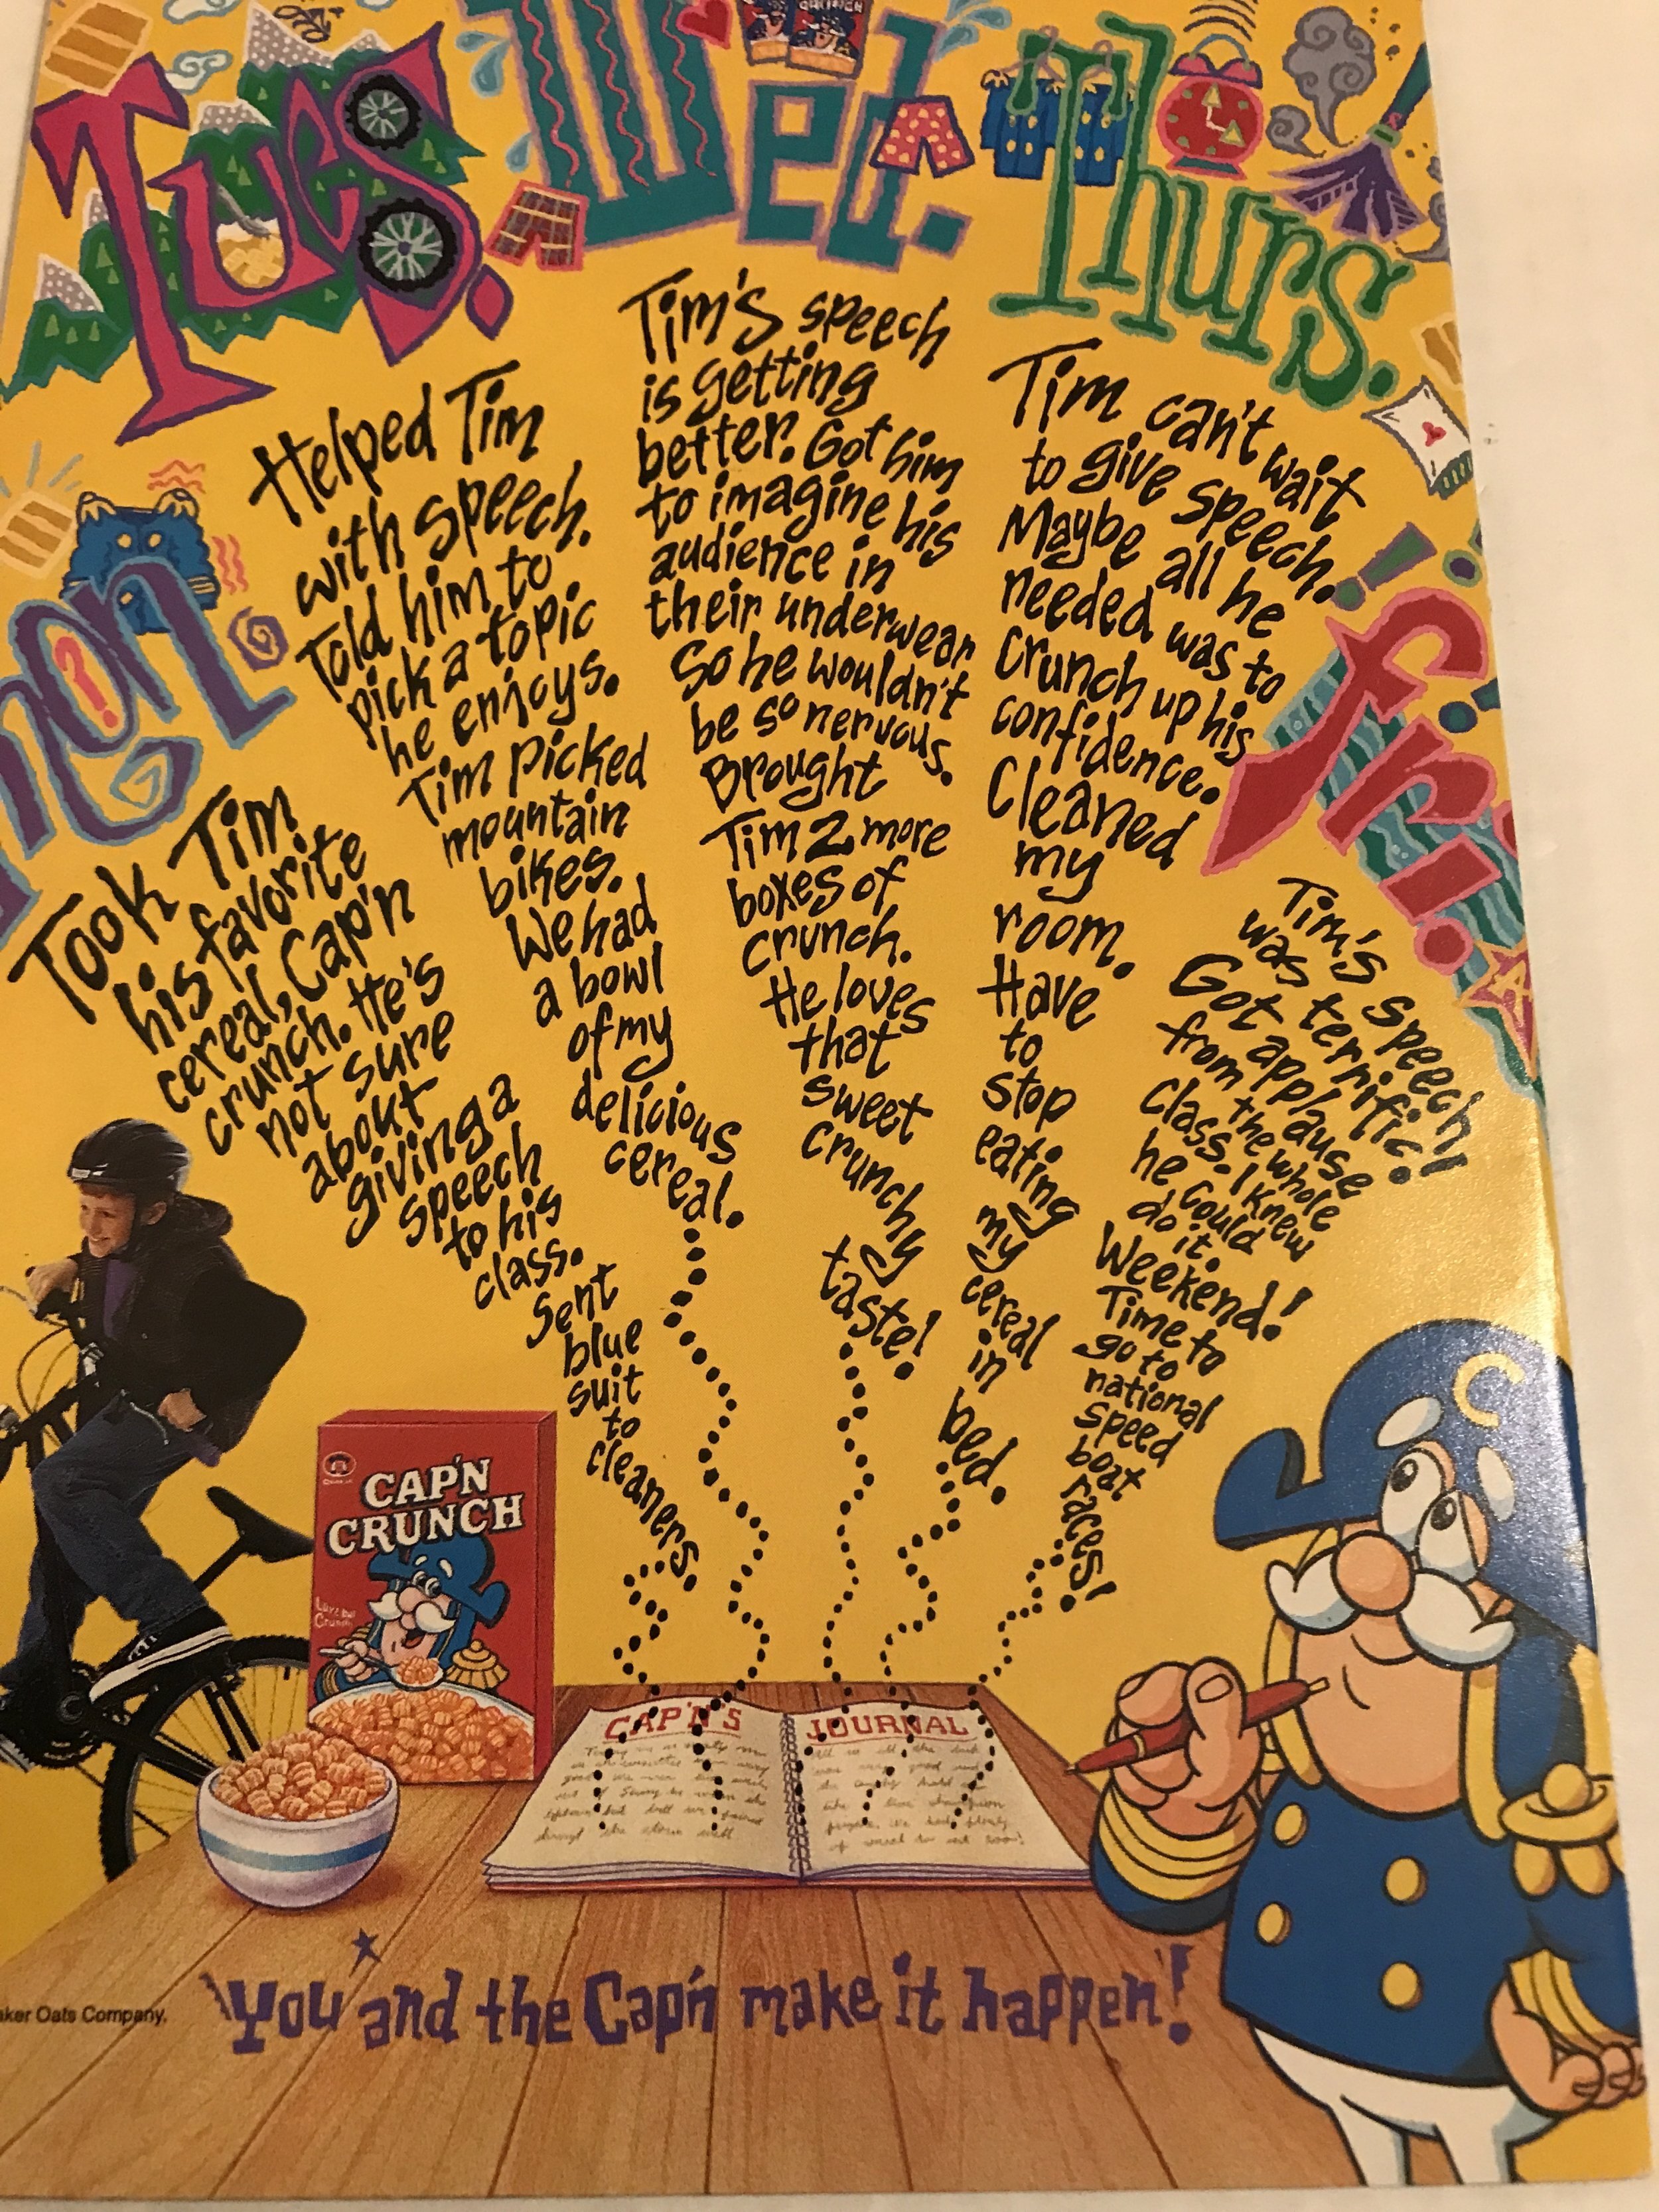 mon.
Took Tim
his favorite
cereal, Cap'n
crunch. He's
not sure
about
giving a
speech
to his
class.
Sent
blue
suit
to
cleaners.
Tues.
Helped Tim
with speech.
Told him to
pick a topic
he enjoys.
Tim picked
mountain
bikes.
We had
a bowl
of my
delicious
cereal.
Wed.
Tim's speech
is getting
better. Got him
to imagine his
audience in
their underwear
so he wouldn't
be so nervous.
Brought
Tim 2 more
boxes of
crunch.
He loves
that
sweet
crunchy
taste!
Thurs.
Tim can't wait
to give speech.
Maybe all he
needed was to
crunch up his
confidence.
Cleaned
my
room.
Have
to
stop
eating
my
cereal
in
bed.
fri.
Tim's speech
was terrific!
Got applause
from the whole
class. I knew
he could
do it.
Weekend!
Time to
go to
national
speed
boat
races!
CAP'N
CRUNCH
CAP'N'S JOURNAL
aker Oats Company.
You and the Cap'n make it happen!
C